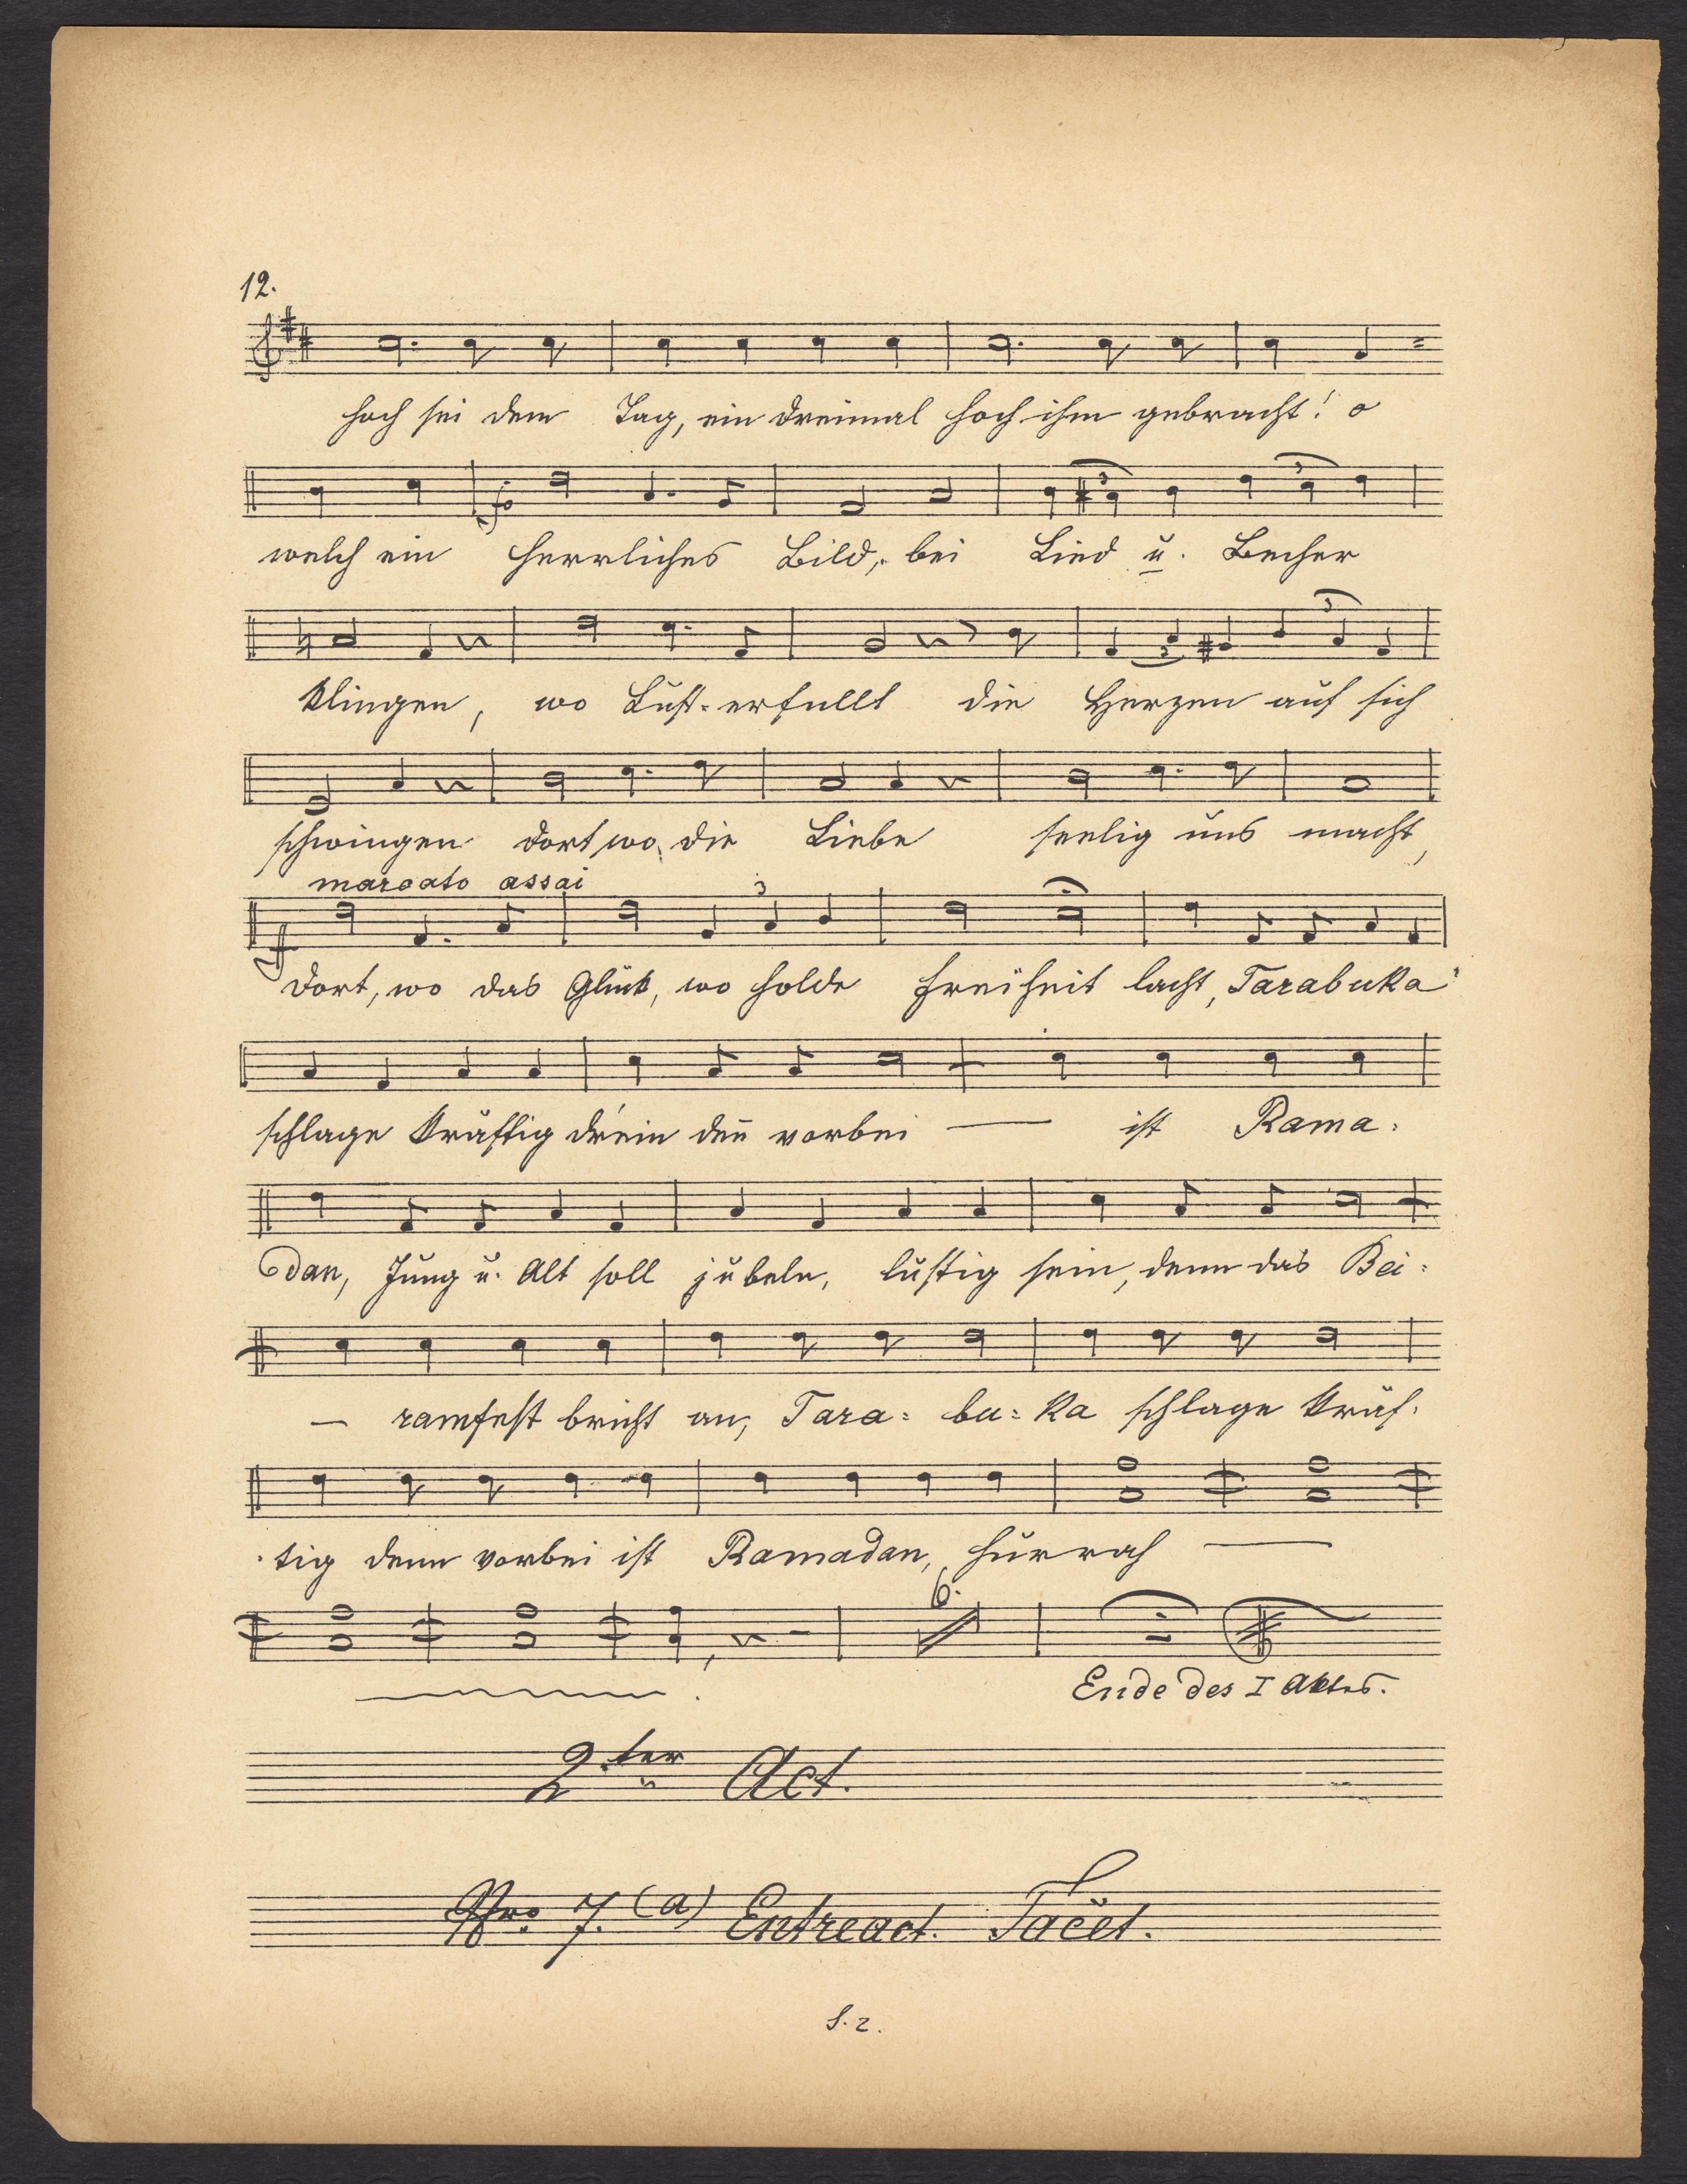 12.
hoch sei dem Tag, ein dreimal hoch ihm gebracht! o
welch ein herrliches Bild, bei Lied u. Becher
3 3
klingen, wo Lust-erfullt die Herzen auf sich
3 3
schwingen dort wo die Liebe seelig uns macht,
marcato assai
3
dort, wo das Glück, wo holde Freiheit lacht, Tarabuka
schlage kräftig dr'ein den̅ vorbei — ist Rama-
dan, Jung u. Alt soll jubeln, lustig sein, denn das Bei-
— ramfest bricht an, Tara- bu- ka schlage kräf-
-tig denn vorbei ist Ramadan, hurrah —
6.
Ende des I Aktes.
2.ter Act.
Nro. 7. (a) Entreact. Tacet.
S. 2.